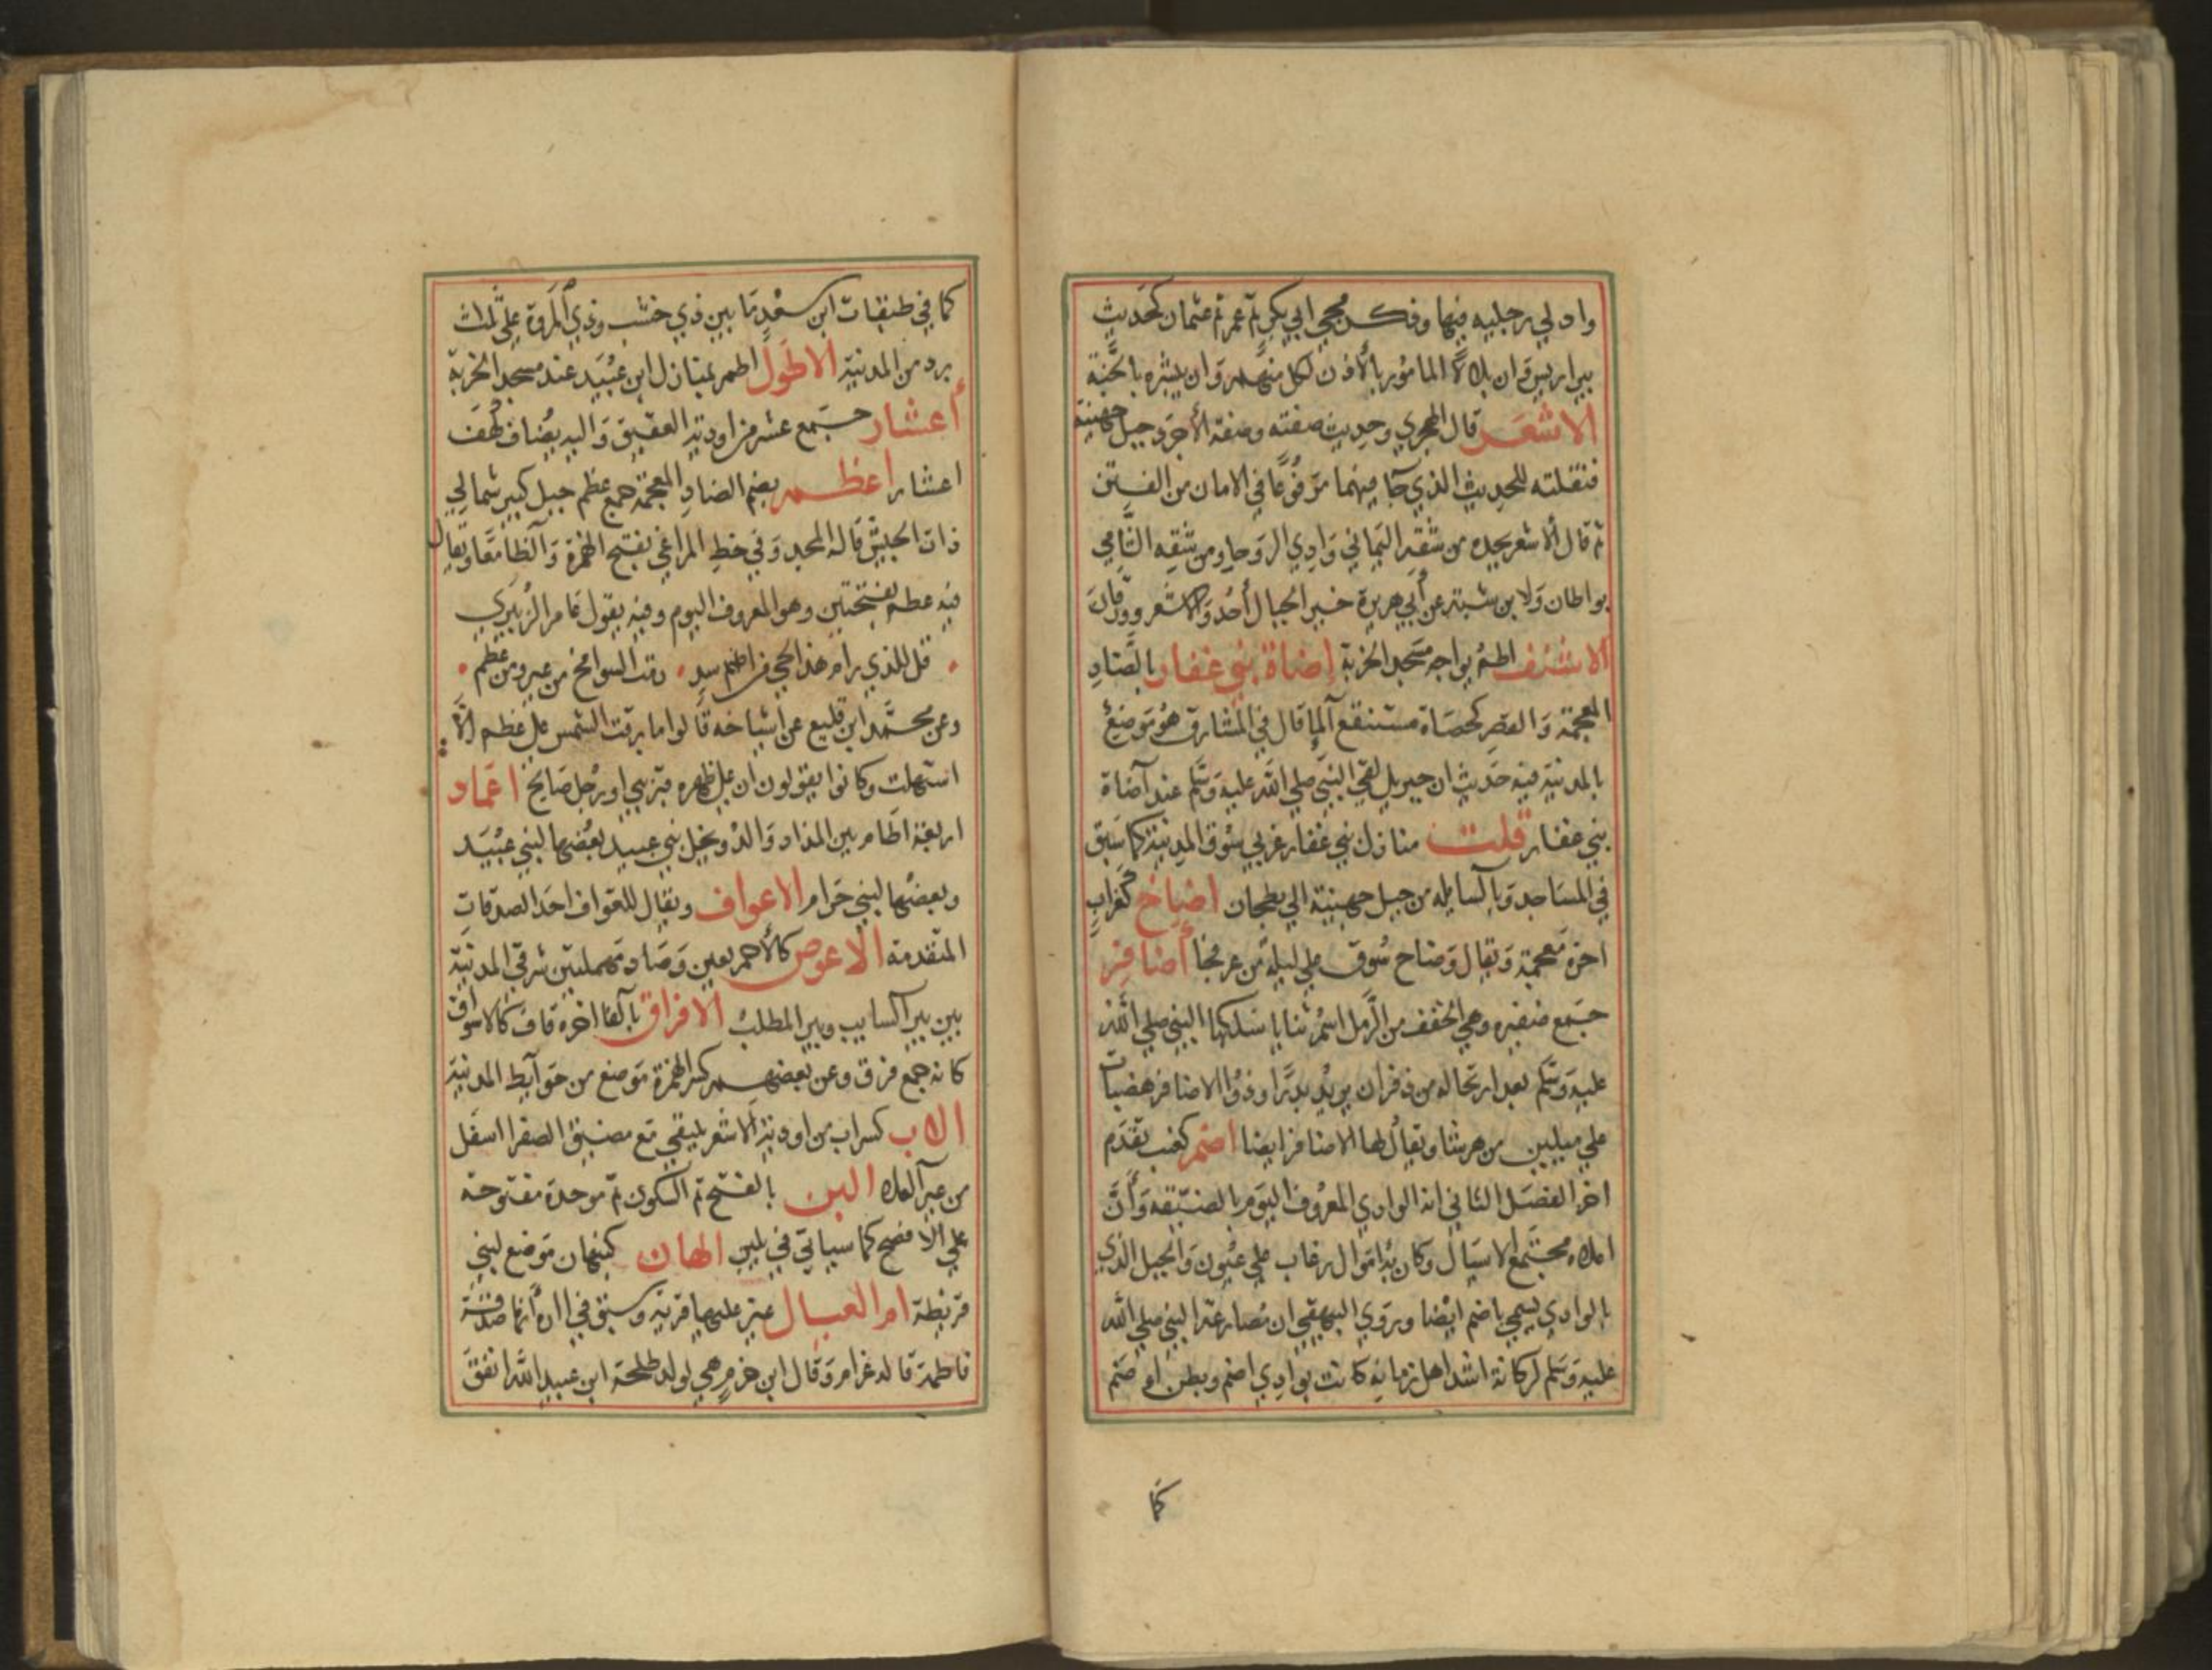 وادلي رجليه فيها وذكر مجي ابي بكر ثم عمر ثم عثمان كحديث
بيراريس وان بلالا المامور بالاذن لكل منهم وان يبشره بالجنة
الاشعر قال الهجري وحديث صفته وصفة الأجرد جبل جهينة
فنقلته للحديث الذي جا فيهما مرفوعا في الامان من الفتن
ثم قال ألاشعر يحده من شقه اليماني وادي الروحا ومن شقه الشامي
بواطان ولابن شبة عن أبي هريرة خير الجبال أحد والاشعر وورقان
الاشنف اطم يواجه مسجد الخربة إضاة بني غفار بالضاد
المعجمة والقصر كحصاة مستنقع الما قال في المشارق هو موضع
بالمدنية فيه حديث ان جبريل لقي النبي صلي الله عليه وسلم عند آضاة
بني غفار قلت منازل بني غفار غربي سوق المدينة كما سبق
في المساجد وبالسايله من جبل جهينة الي بطحان اضاخ كغراب
اخره معجمة ويقال وضاح سوق علي ليلة من عرفجا أضافر
جمع ضفيره وهي الحقف من الرمل اسم ثنايا سلكها النبي صلي الله
عليه وسلم بعد ارتحاله من ذفران يريد بدرا وذوا الاضافر هضبات
علي ميلين من هرشا ويقال لها الاضافر ايضا اضم كعنب تقدم
اخر الفصل الثاني انه الوادي المعروف اليوم بالضيقه وأن
اعلاه مجتمع الاسيال وكان به اموال رغاب علي عيون والجبل الذي
بالوادي يسمي باضم ايضا وروي البيهقي ان مصارعة النبي صلي الله
عليه وسلم لركانة اشد اهل زمانه كانت بوادي اضم وبطن اضم
كما
كما في طبقات ابن سعد ما بين ذي خشب وذي المروة علي ثلاث
برد من المدنية الاطول اطم بمنازل ابن عبيد عند مسجد الخربة
أعشار جمع عشر من اودية العقيق واليه يضاف كهف
اعشار اعظم بضم الضاد المعجمة جمع عظم جبل كبير شمالي
ذات الجيش قاله المجد وفي خط المراغي بفتح الهمزة والظا معا ويقال
فيه عظم بفتحتين وهو المعروف اليوم وفيه يقول عامر الزبيري
قل للذي رام هذا الحي من اسد رمت السوامخ من عير ومن عظم
وعن محمد ابن قليع عن أشياخه قالوا ما برقت الشمس علي عظم الا
استهلت وكانوا يقولون ان علي ظهره قبر نبي او رجل صالح اعماد
اربعة اطام بين المذاد والدويخل بني عبيد بعضها لبني عبيد
وبعضها لبني حرام الاعواف ويقال للعواف احد الصدقات
المتقدمة الاعوص كالأحمر بعين وصاد مهملتين شرقي المدنية
بين بير السايب وبير المطلب الافراق بالفا اخره قاف كالاسواق
كانه جمع فرق وعن بعضهم كسر الهمزة موضع من حوآيط المدنية
الاب كسراب من اودية الاشعر يلتقي مع مضيق الصفرا اسفل
من عين العلا البن بالفتح ثم السكون ثم موحدة مفتوحة
علي الافصح كما سياتي في يلبن الهان كنبهان موضع لبني
قريظة ام العيال عين عليها قرية وسبق في ارة أنها صدقة
فاطمة قاله عرام وقال ابن حزم هي لولد طلحة ابن عبيد الله انفق